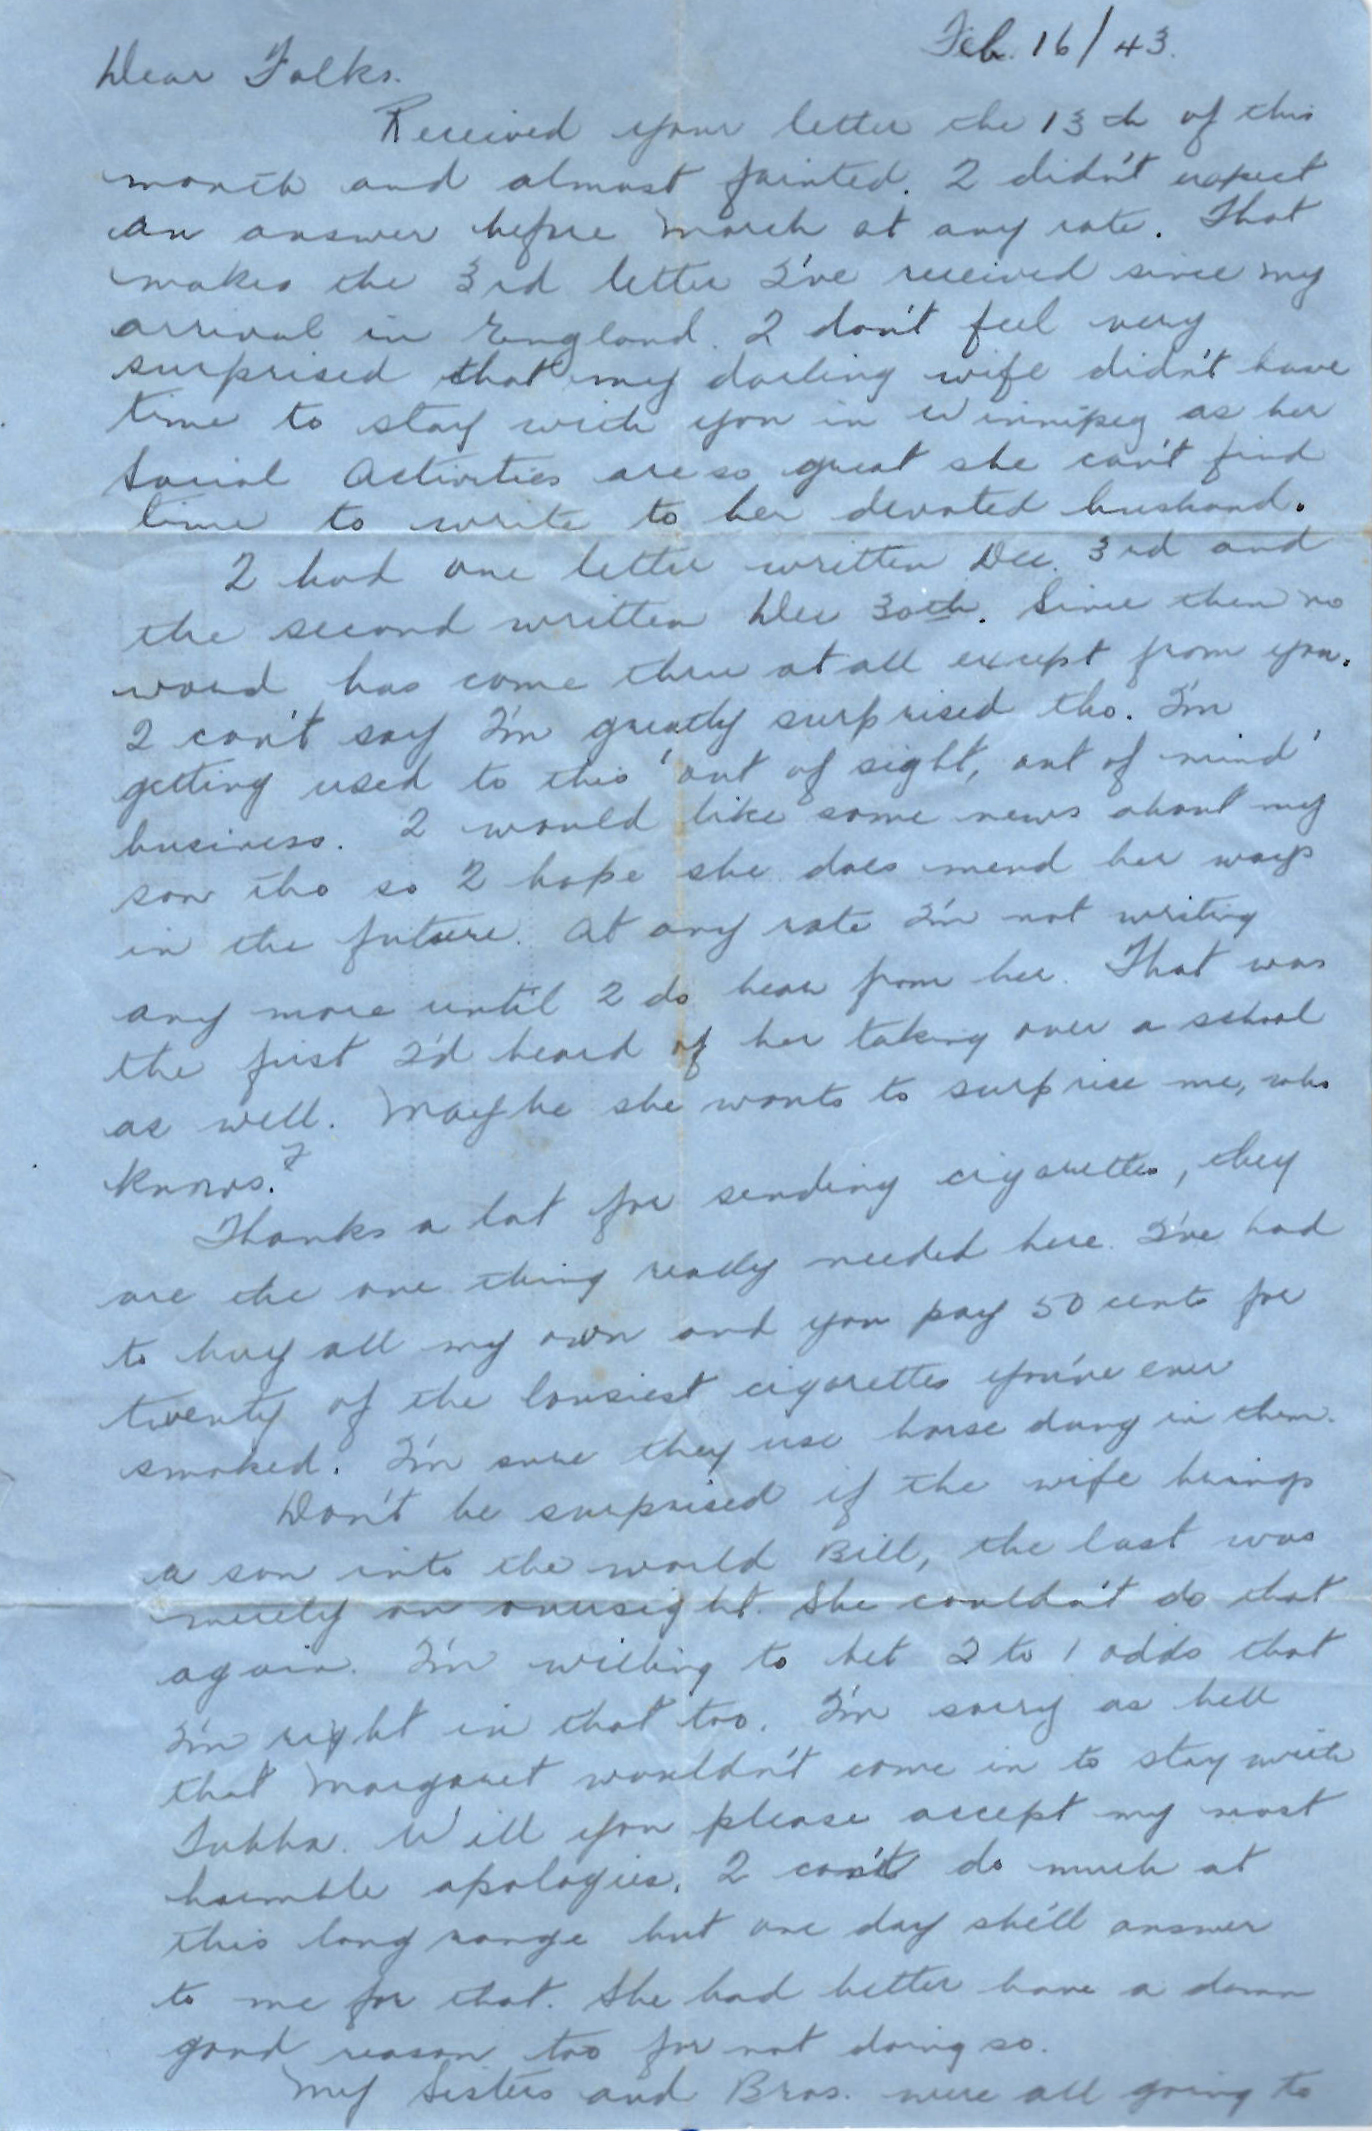 Feb. 16/43.
Dear Folks.
Received your letter the 13th of this
month and almost fainted. I didn't expect
an answer before March at any rate. That
makes the 3rd letter I've received since my
arrival in England. I don't feel very
surprised that my darling wife didn't have
time to stay with you in Winnipeg as her
Social Activities are so great she can't find
time to write to her devoted husband.
I had one letter written Dec. 3rd and
the second written Dec 30th. Since then no
word has come thru at all except from you.
I can't say I'm greatly surprised tho. I'm
getting used to this 'out of sight, out of mind'
business. I would like some news about my
son tho so I hope she does mend her ways
in the future. At any rate I'm not writing
any more until I do hear from her. That was
the first I'd heard of her taking over a school
as well. Maybe she wants to surprise me, who
knows?
Thanks a lot for sending cigarettes, they
are the one thing really needed here. I've had
to buy all my own and you pay 50 cents for
twenty of the lousiest cigarettes you've ever
smoked. I'm sure they use horse dung in them.
Don't be surprised if the wife brings
a son into the world Bill, the last was
merely an oversight. She couldn't do that
again. I'm willing to bet 2 to 1 odds that
I'm right in that too. I'm sorry as hell
that Margaret wouldn't come in to stay with
Tubba. Will you please accept my most
humble apologies. I can't do much at
this long range but one day she'll answer
to me for that. She had better have a damn
good reason too for not doing so.
My Sisters and Bros. were all going to